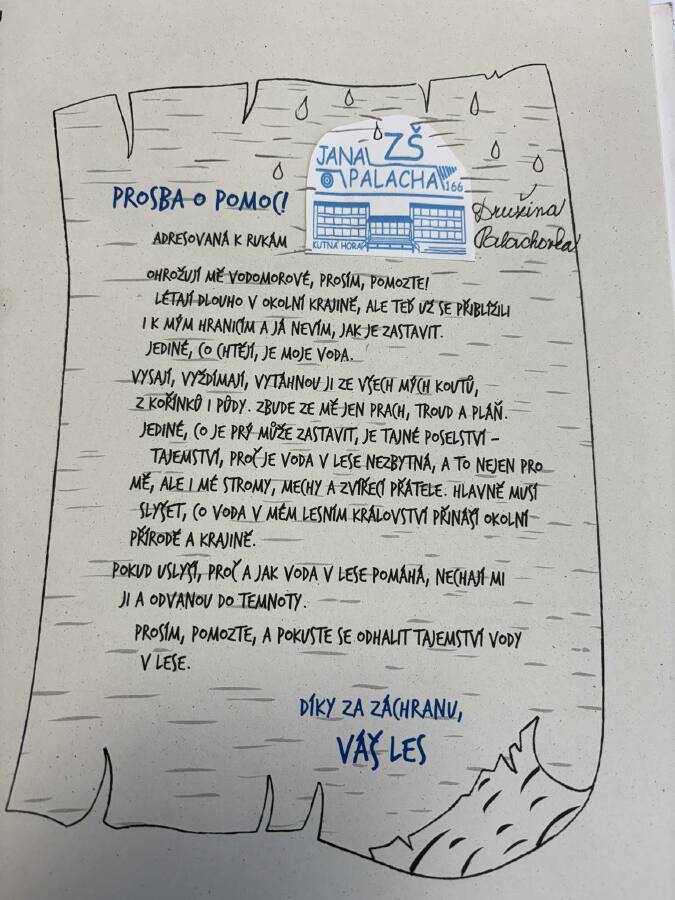 JANA ZŠ
PALACHA 166
KUTNÁ HORA
PROSBA O POMOC!
Družina
ADRESOVANÁ K RUKÁM
Palachovka
OHROŽUJÍ MĚ VODOMOROVÉ, PROSÍM, POMOZTE!
LÉTAJÍ DLOUHO V OKOLNÍ KRAJINĚ, ALE TEĎ UŽ SE PŘIBLÍŽILI
I K MÝM HRANICÍM A JÁ NEVÍM, JAK JE ZASTAVIT.
JEDINÉ, CO CHTĚJÍ, JE MOJE VODA.
VYSAJÍ, VYŽDÍMAJÍ, VYTÁHNOU JI ZE VŠECH MÝCH KOUTŮ,
Z KOŘÍNKŮ I PŮDY. ZBUDE ZE MĚ JEN PRACH, TROUD A PLÁŇ.
JEDINÉ, CO JE PRÝ MŮŽE ZASTAVIT, JE TAJNÉ POSELSTVÍ –
TAJEMSTVÍ, PROČ JE VODA V LESE NEZBYTNÁ, A TO NEJEN PRO
MĚ, ALE I MÉ STROMY, MECHY A ZVÍŘECÍ PŘÁTELE. HLAVNĚ MUSÍ
SLYŠET, CO VODA V MÉM LESNÍM KRÁLOVSTVÍ PŘINÁŠÍ OKOLNÍ
PŘÍRODĚ A KRAJINĚ.
POKUD USLYŠÍ, PROČ A JAK VODA V LESE POMÁHÁ, NECHAJÍ MI
JI A ODVANOU DO TEMNOTY.
PROSÍM, POMOZTE, A POKUSTE SE ODHALIT TAJEMSTVÍ VODY
V LESE.
DÍKY ZA ZÁCHRANU,
VÁŠ LES